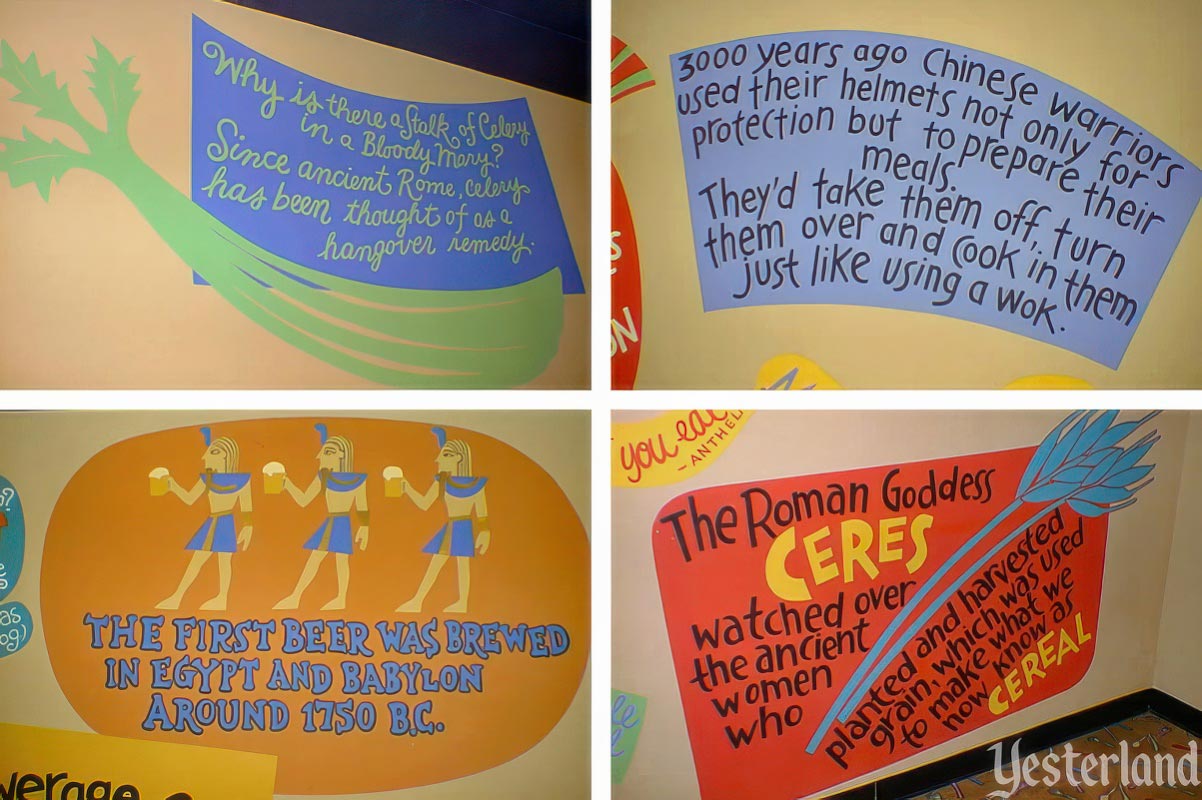 Why is there a Stalk of Celery
in a Bloody Mary?
Since ancient Rome, celery
has been thought of as a
hangover remedy.
3000 years ago Chinese warriors
used their helmets not only for
protection but to prepare their
meals.
They'd take them off, turn
them over and cook in them
just like using a wok.
ON
THE FIRST BEER WAS BREWED
IN EGYPT AND BABYLON
AROUND 1750 B.C.
you eat
- ANTHEL
The Roman Goddess
CERES
watched over
the ancient
women
who
planted and harvested
grain, which was used
to make what we
now know as
CEREAL
Yesterland